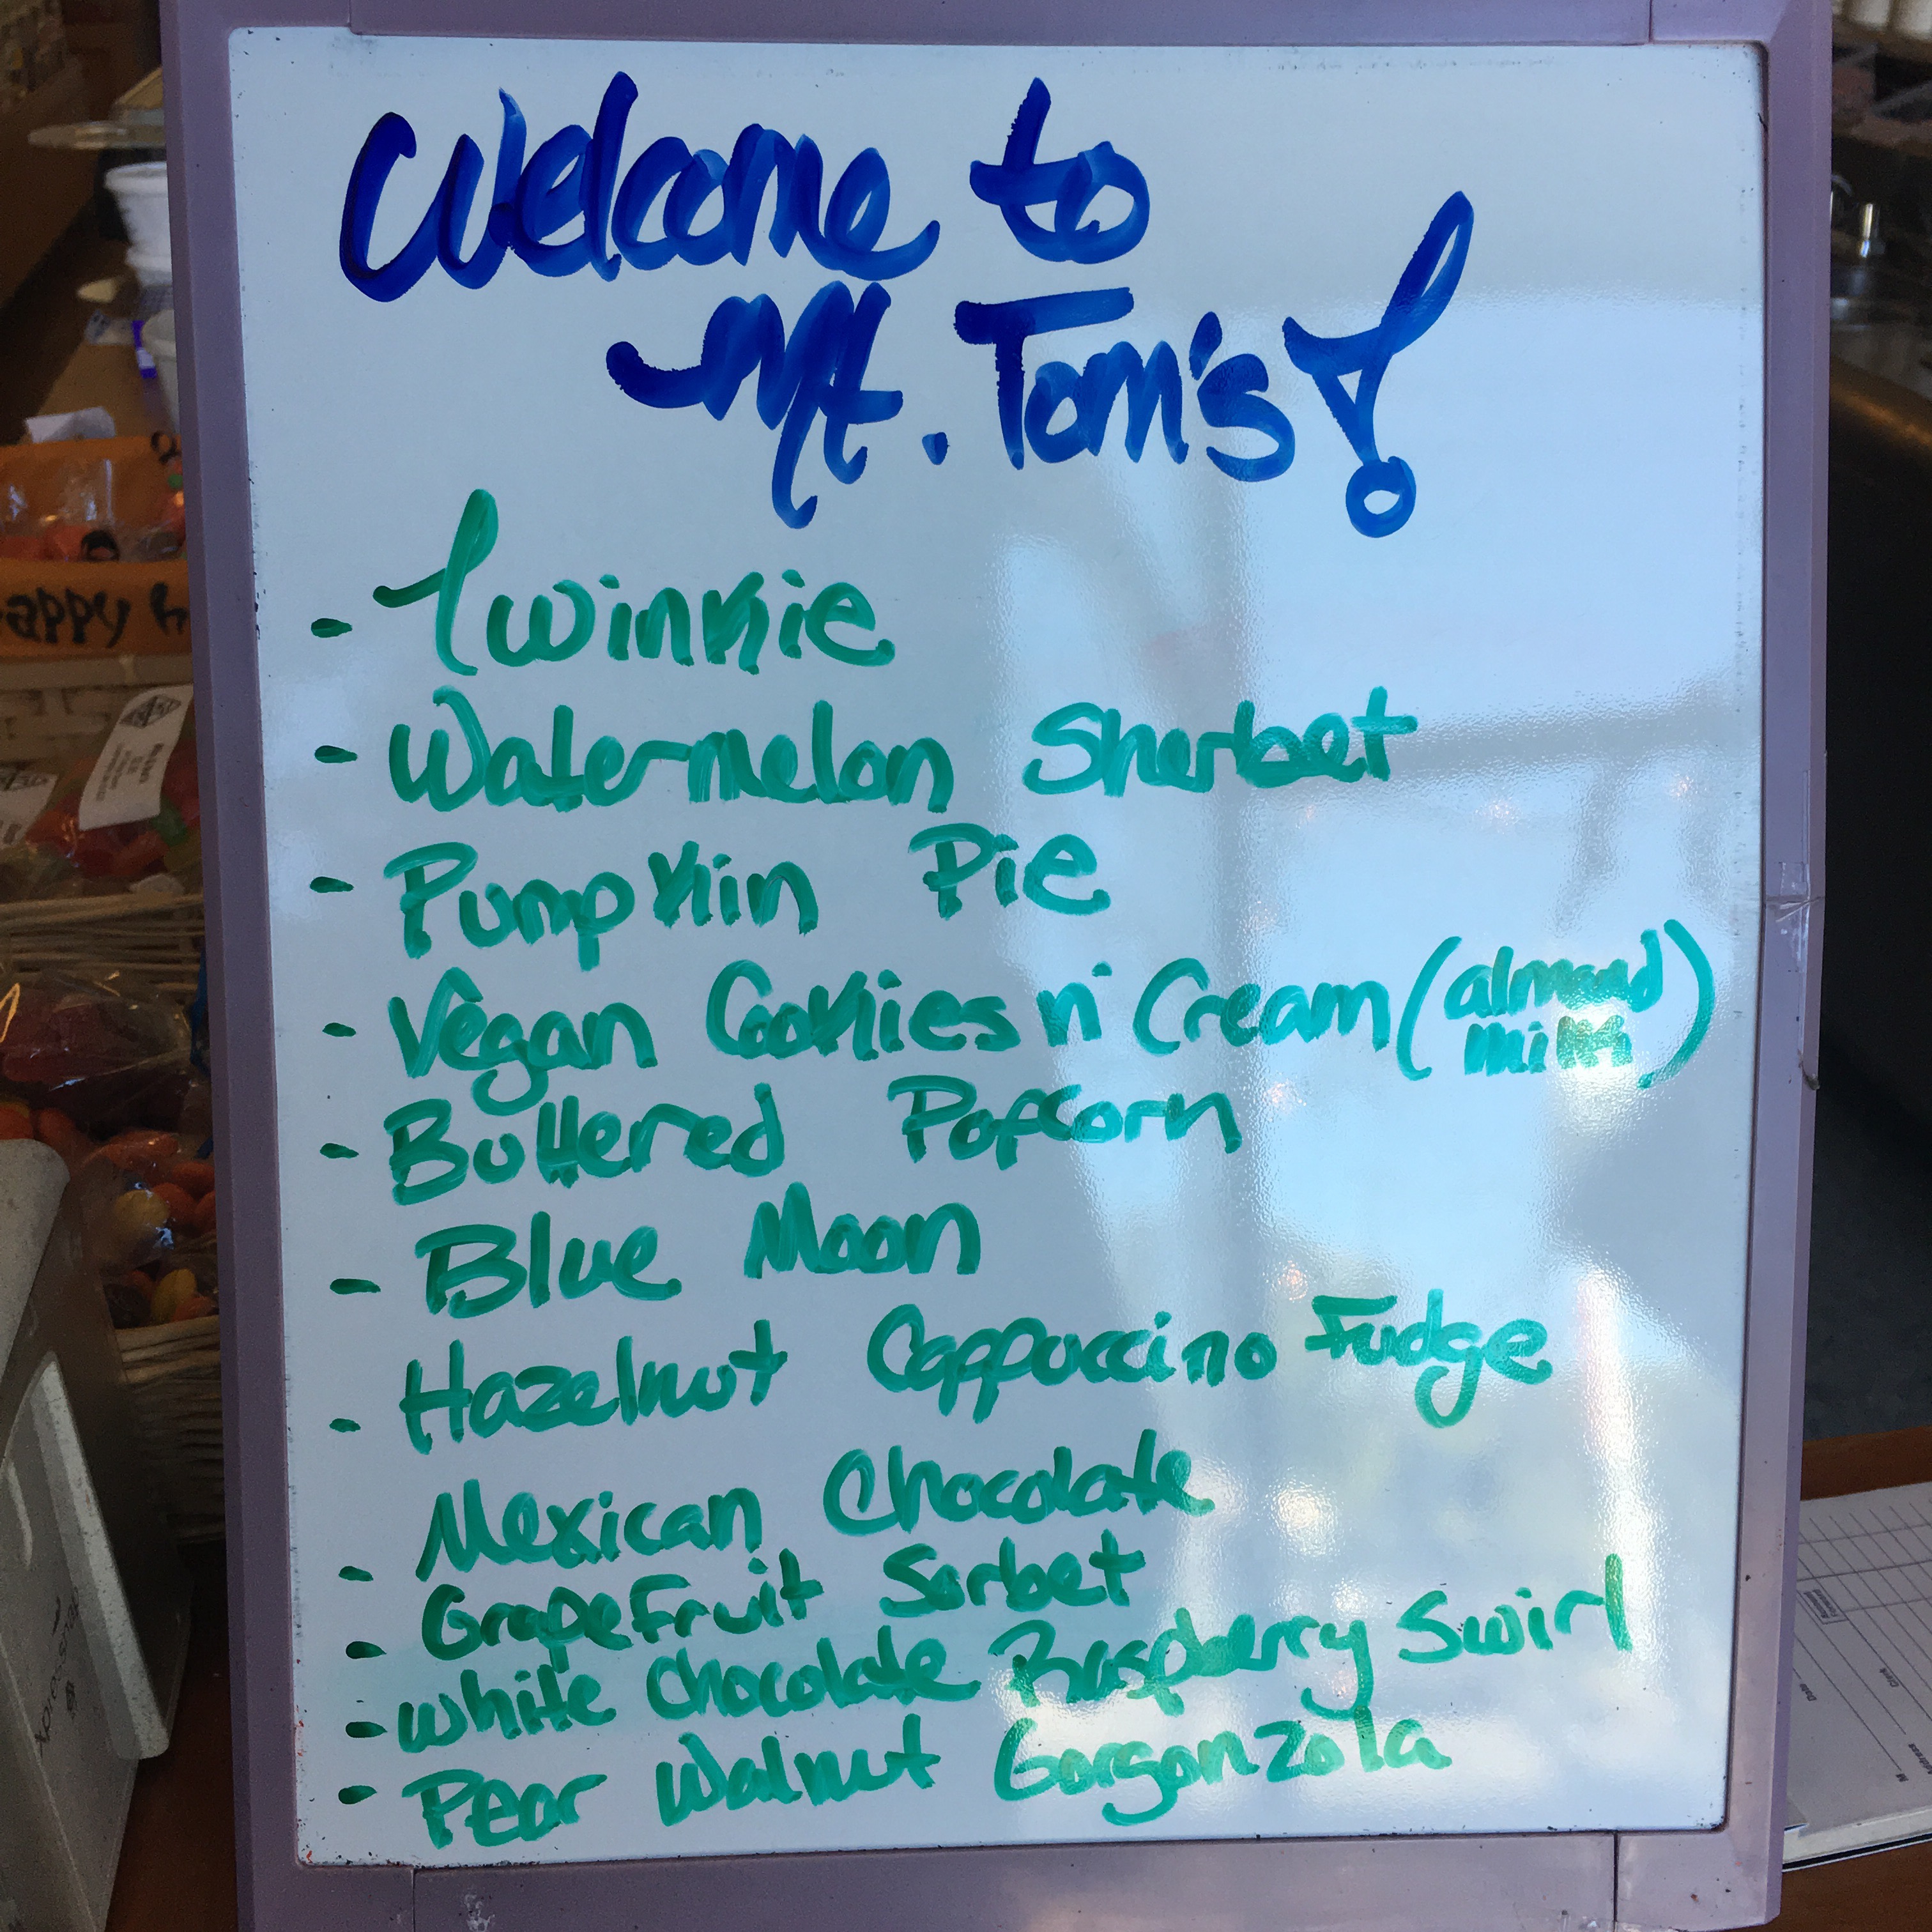 Welcome to
Mt. Tom's!
- Twinkie
- Watermelon Sherbet
- Pumpkin Pie
- Vegan Cookies n' Cream (almond milk)
- Buttered Popcorn
- Blue Moon
- Hazelnut Cappuccino Fudge
- Mexican Chocolate
- Grapefruit Sorbet
- White Chocolate Raspberry Swirl
- Pear Walnut Gorgonzola
appy h